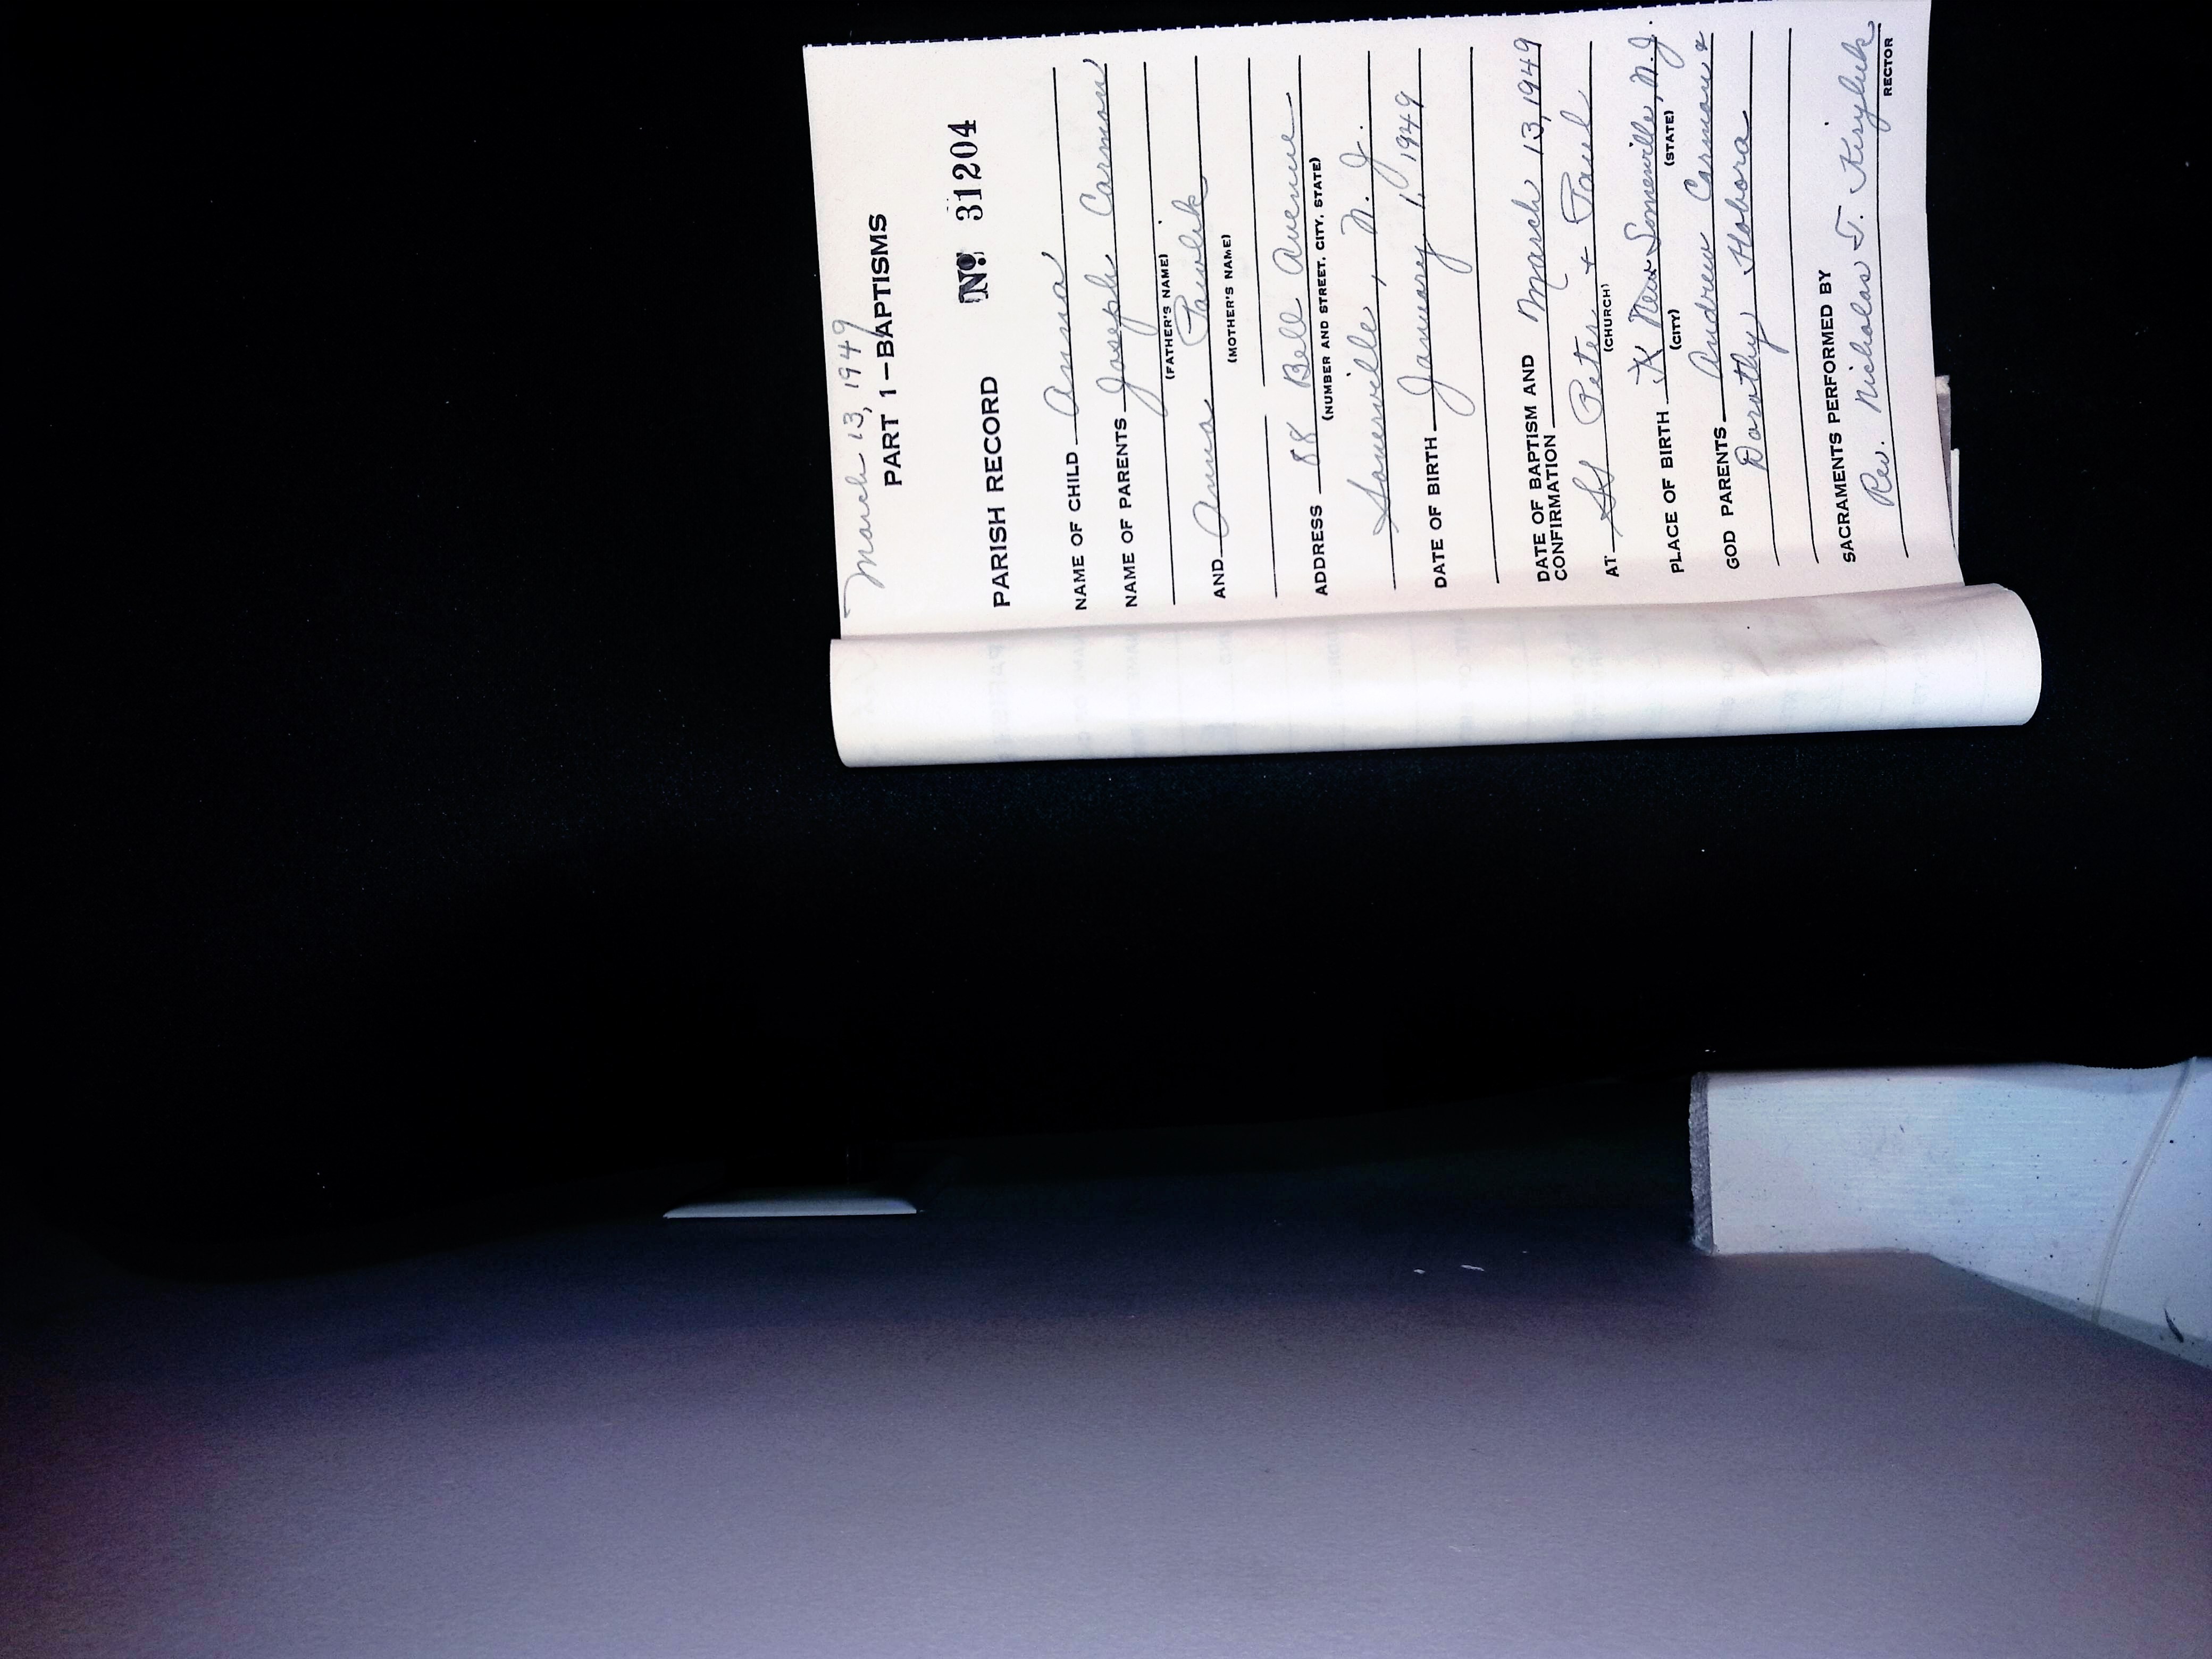 March 13, 1949
PART 1-BAPTISMS
PARISH RECORD Nº 31204
NAME OF CHILD Anna
NAME OF PARENTS Joseph Carman
(FATHER'S NAME)
AND Anna Pawlik
(MOTHER'S NAME)
ADDRESS 88 Bell Avenue
(NUMBER AND STREET, CITY, STATE)
Somerville, N. J.
DATE OF BIRTH January 1, 1949
DATE OF BAPTISM AND March 13, 1949
CONFIRMATION
AT SS Peter + Paul
(CHURCH)
PLACE OF BIRTH New Somerville, N. J.
(CITY) (STATE)
GOD PARENTS Andrew Carman &
Dorothy Hobora
SACRAMENTS PERFORMED BY
Rev. Nicholas T. Kiryluk
RECTOR